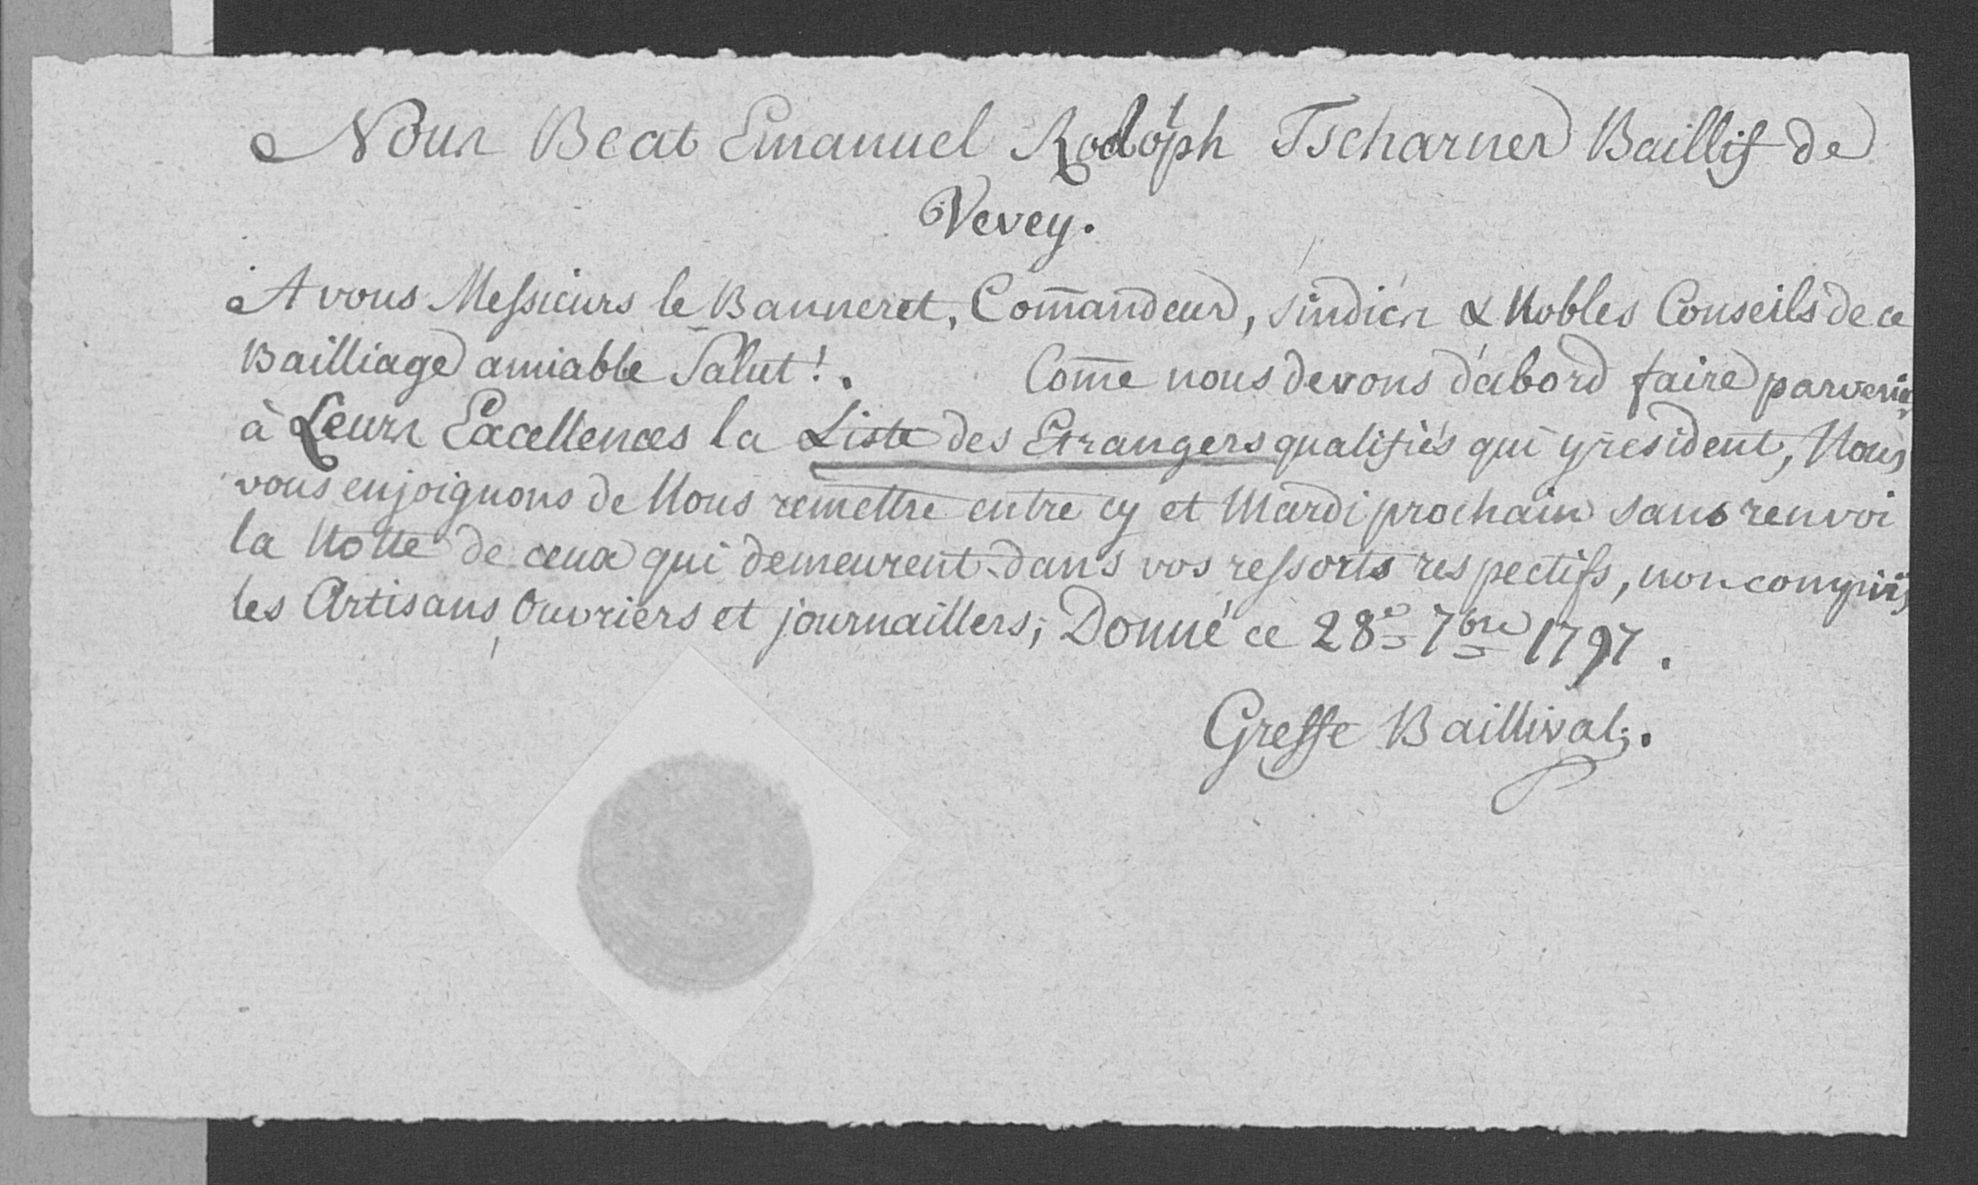 Nous Beat Emanuel Rodolph Tscharner Baillif de
Vevey.
A vous Messieurs le Banneret, Com̄andeur, sindics & Nobles Conseils de ce
Bailliage amiable Salut!. Com̄e nous devons d'abord faire parvenir
à Leurs Excellences la Liste des Etrangers qualifiés qui y resident, Nous
vous enjoignons de Nous remettre entre cy et Mardi prochain sans renvoi
la Notte de ceux qui demeurent dans vos ressorts respectifs, non compris
les Artisans, Ouvriers et journaillers; Donné ce 28e 7bre 1797.
Greffe Baillival.